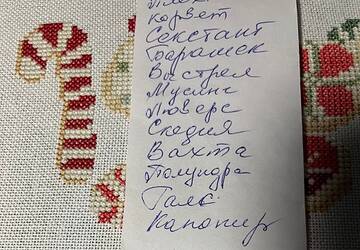 корвет
Секстант
Барашек
Выстрел
Мусинг
Люверс
Скедия
Вахта
Полундра
Галс